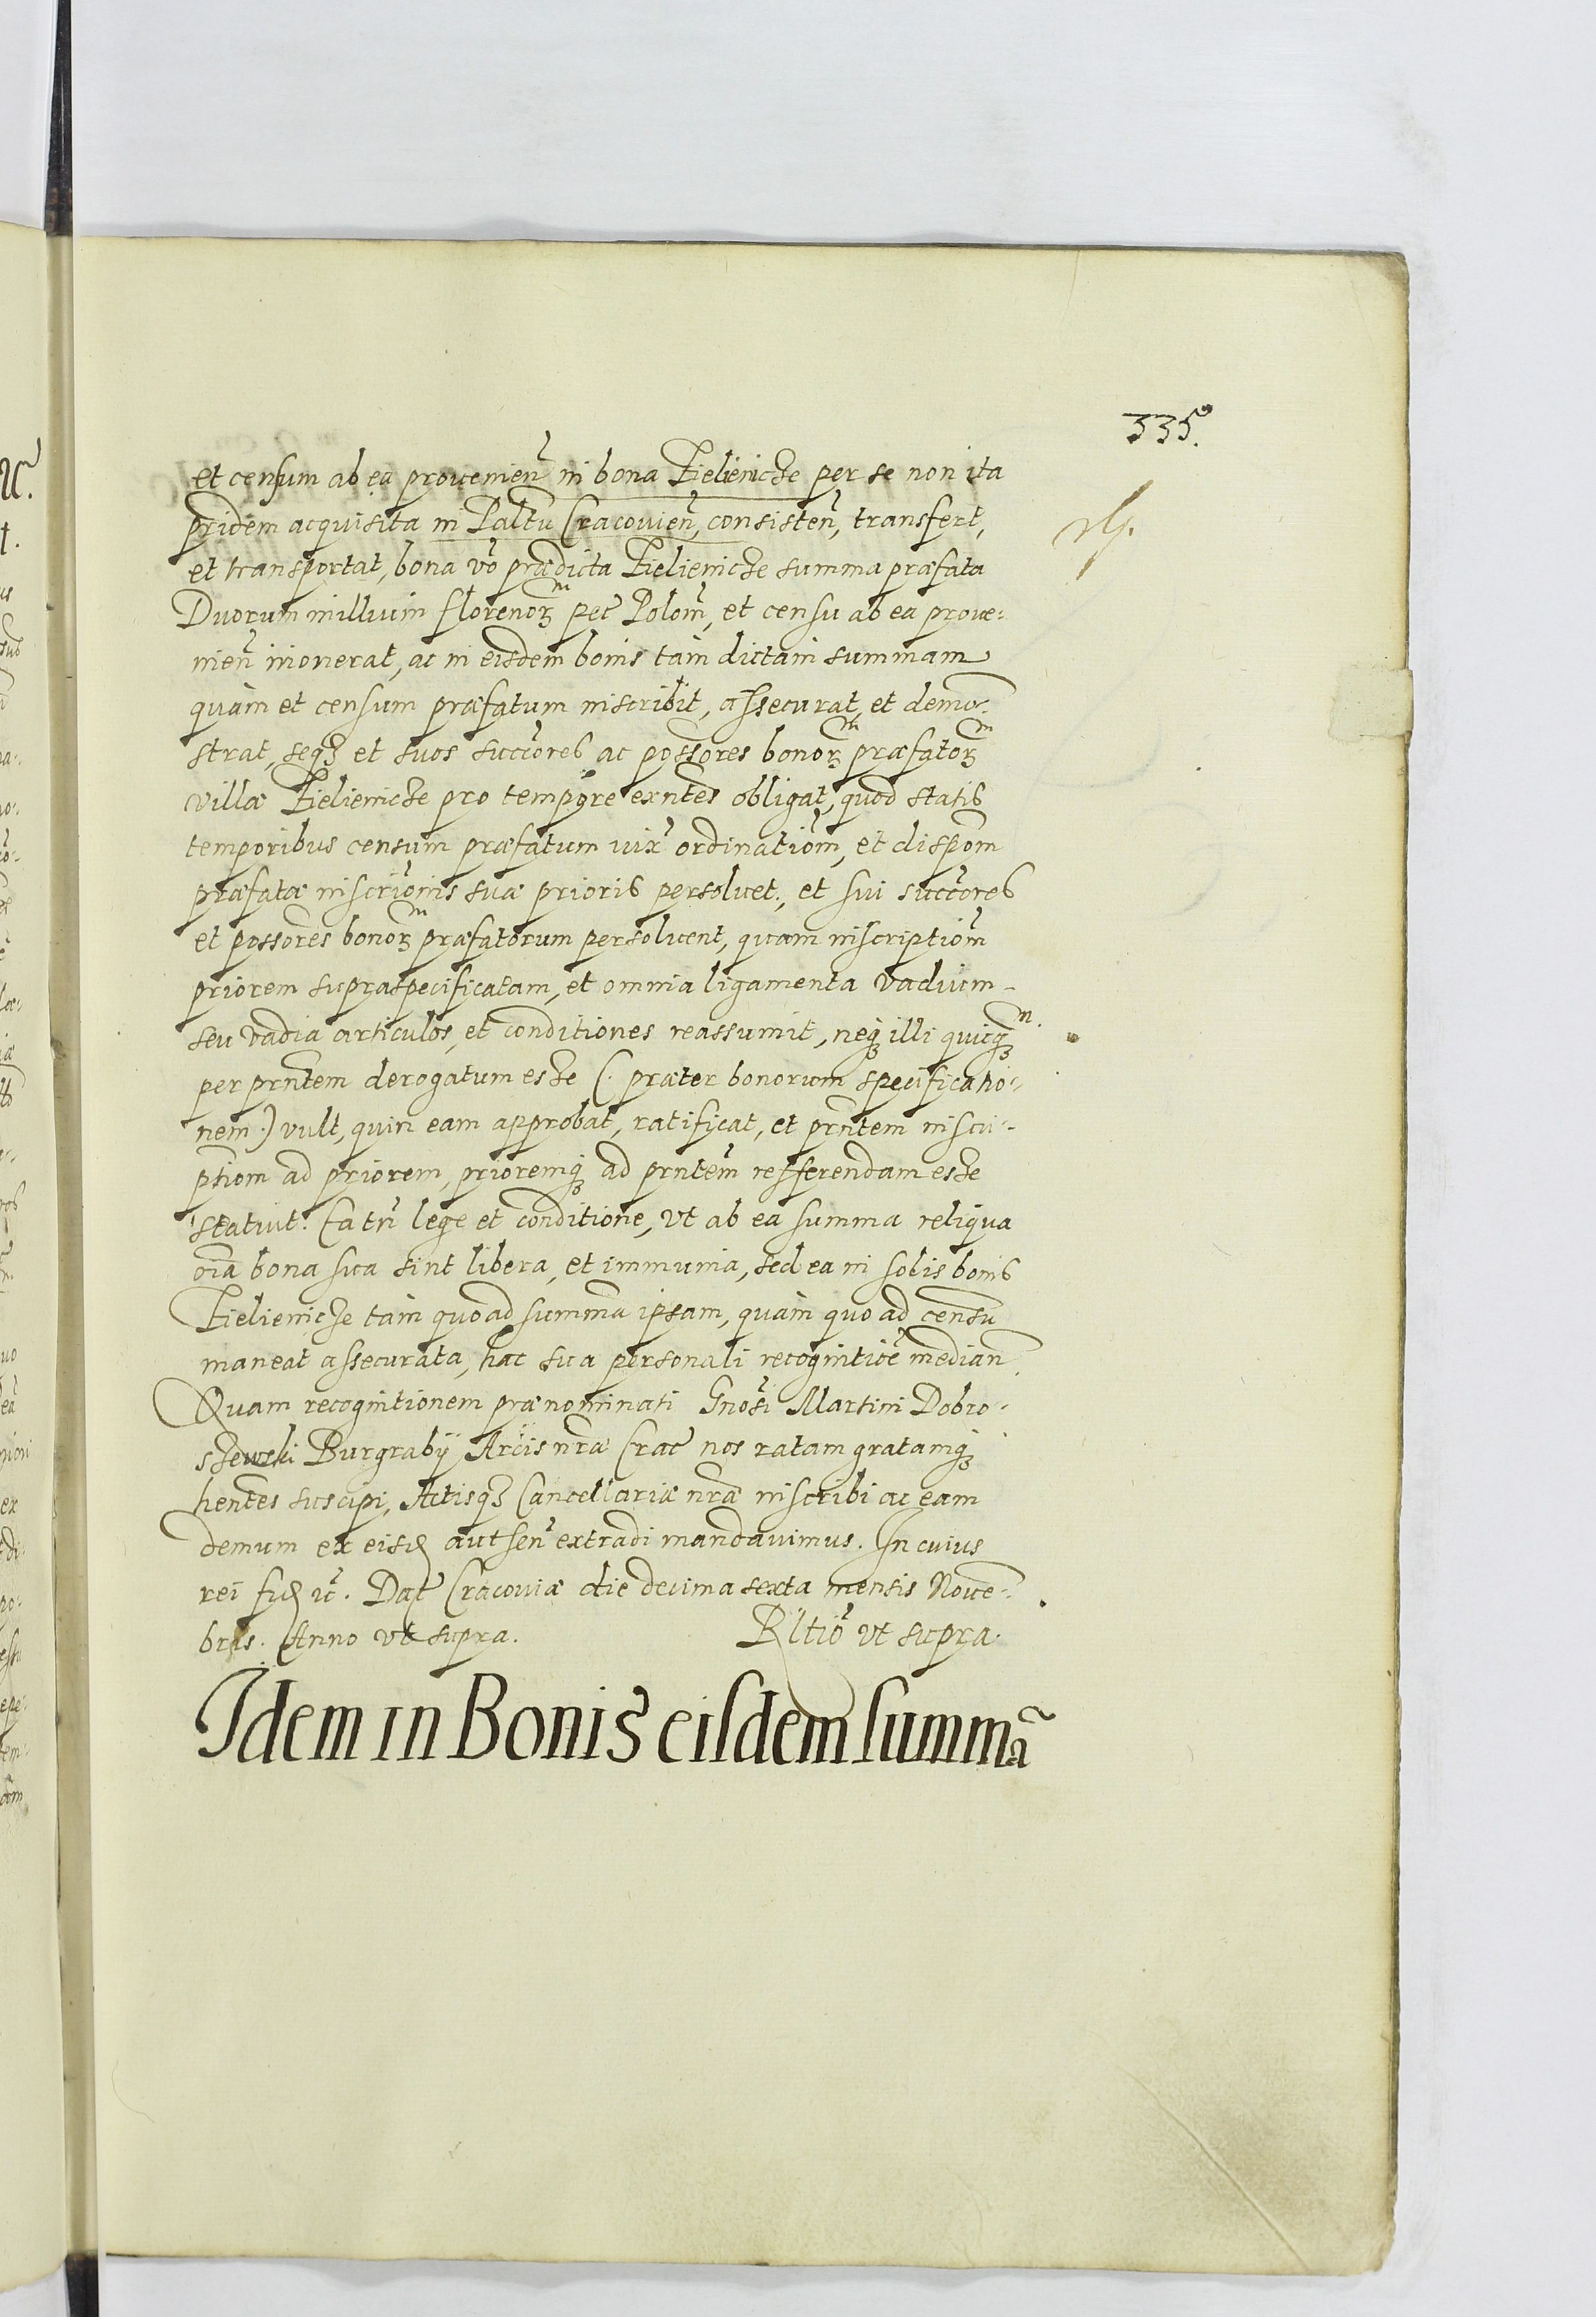 335.
et censum ab ea provenien̄ in bona Bielieniche per se non ita
pridem acquisita in Paltu Cracovien̄, consisten̄, transfert,
et transportat, bona vō prædicta Bielieniche summa præfata
Duorum millium florenorꝫ pec̄ Polon̄, et censu ab ea prove-
nien̄ inonerat, ac in eisdem bonis tàm dictam summam
quàm et censum præfatum inscribit, assecurat, et demon-
strat, seqꝫ et suos succ̄ores ac poss̄ores bonorꝫ præfatorꝫ
villæ Bielieniche pro tempore exn̄tes obligat, quod statis
temporibus censum præfatum iux̄ ordination̄, et disposn̄
præfatæ inscrion̄is suæ prioris persolvet, et sui succ̄ores
et poss̄ores bonorꝫ præfatorum persolvent, quam inscription̄
priorem supraspecificatam, et omnia ligamenta vadium
seu vadia articulos, et conditiones reassumit, neqꝫ illi quicqꝫ
per prn̄tem derogatum esse (præter bonorum specificatio-
nem) vult, quin eam approbat, ratificat, et prn̄tem inscri-
ption̄ ad priorem, prioremqꝫ ad prn̄tem refferendam esse
statuit. Ea tn̄ lege et conditione, vt ab ea summa reliqua
oīa bona sua sint libera, et immunia, sed ea in solis bonis
Bielieniche tàm quoad summā ipsam, quàm quo ad censū
maneat assecurata, hac sua personali recognition̄e median̄.
Quam recognitionem prænominati Gn̄osi Martini Dobro-
szewski Burgrabij Arcis nr̄æ Crac̄ nos ratam gratamqꝫ
hen̄tes suscipi, Actisqꝫ Cancellariæ nr̄æ inscribi ac eam
demum ex eisd̄ autsen̄ extradi mandavimus. In cuius
rei fid̄ ic̄. Dat̄ Cracoviæ die decima sexta mensis Novē-
bris. Anno vt supra. Rltiō vt supra.
Idem in Bonis eisdem summā